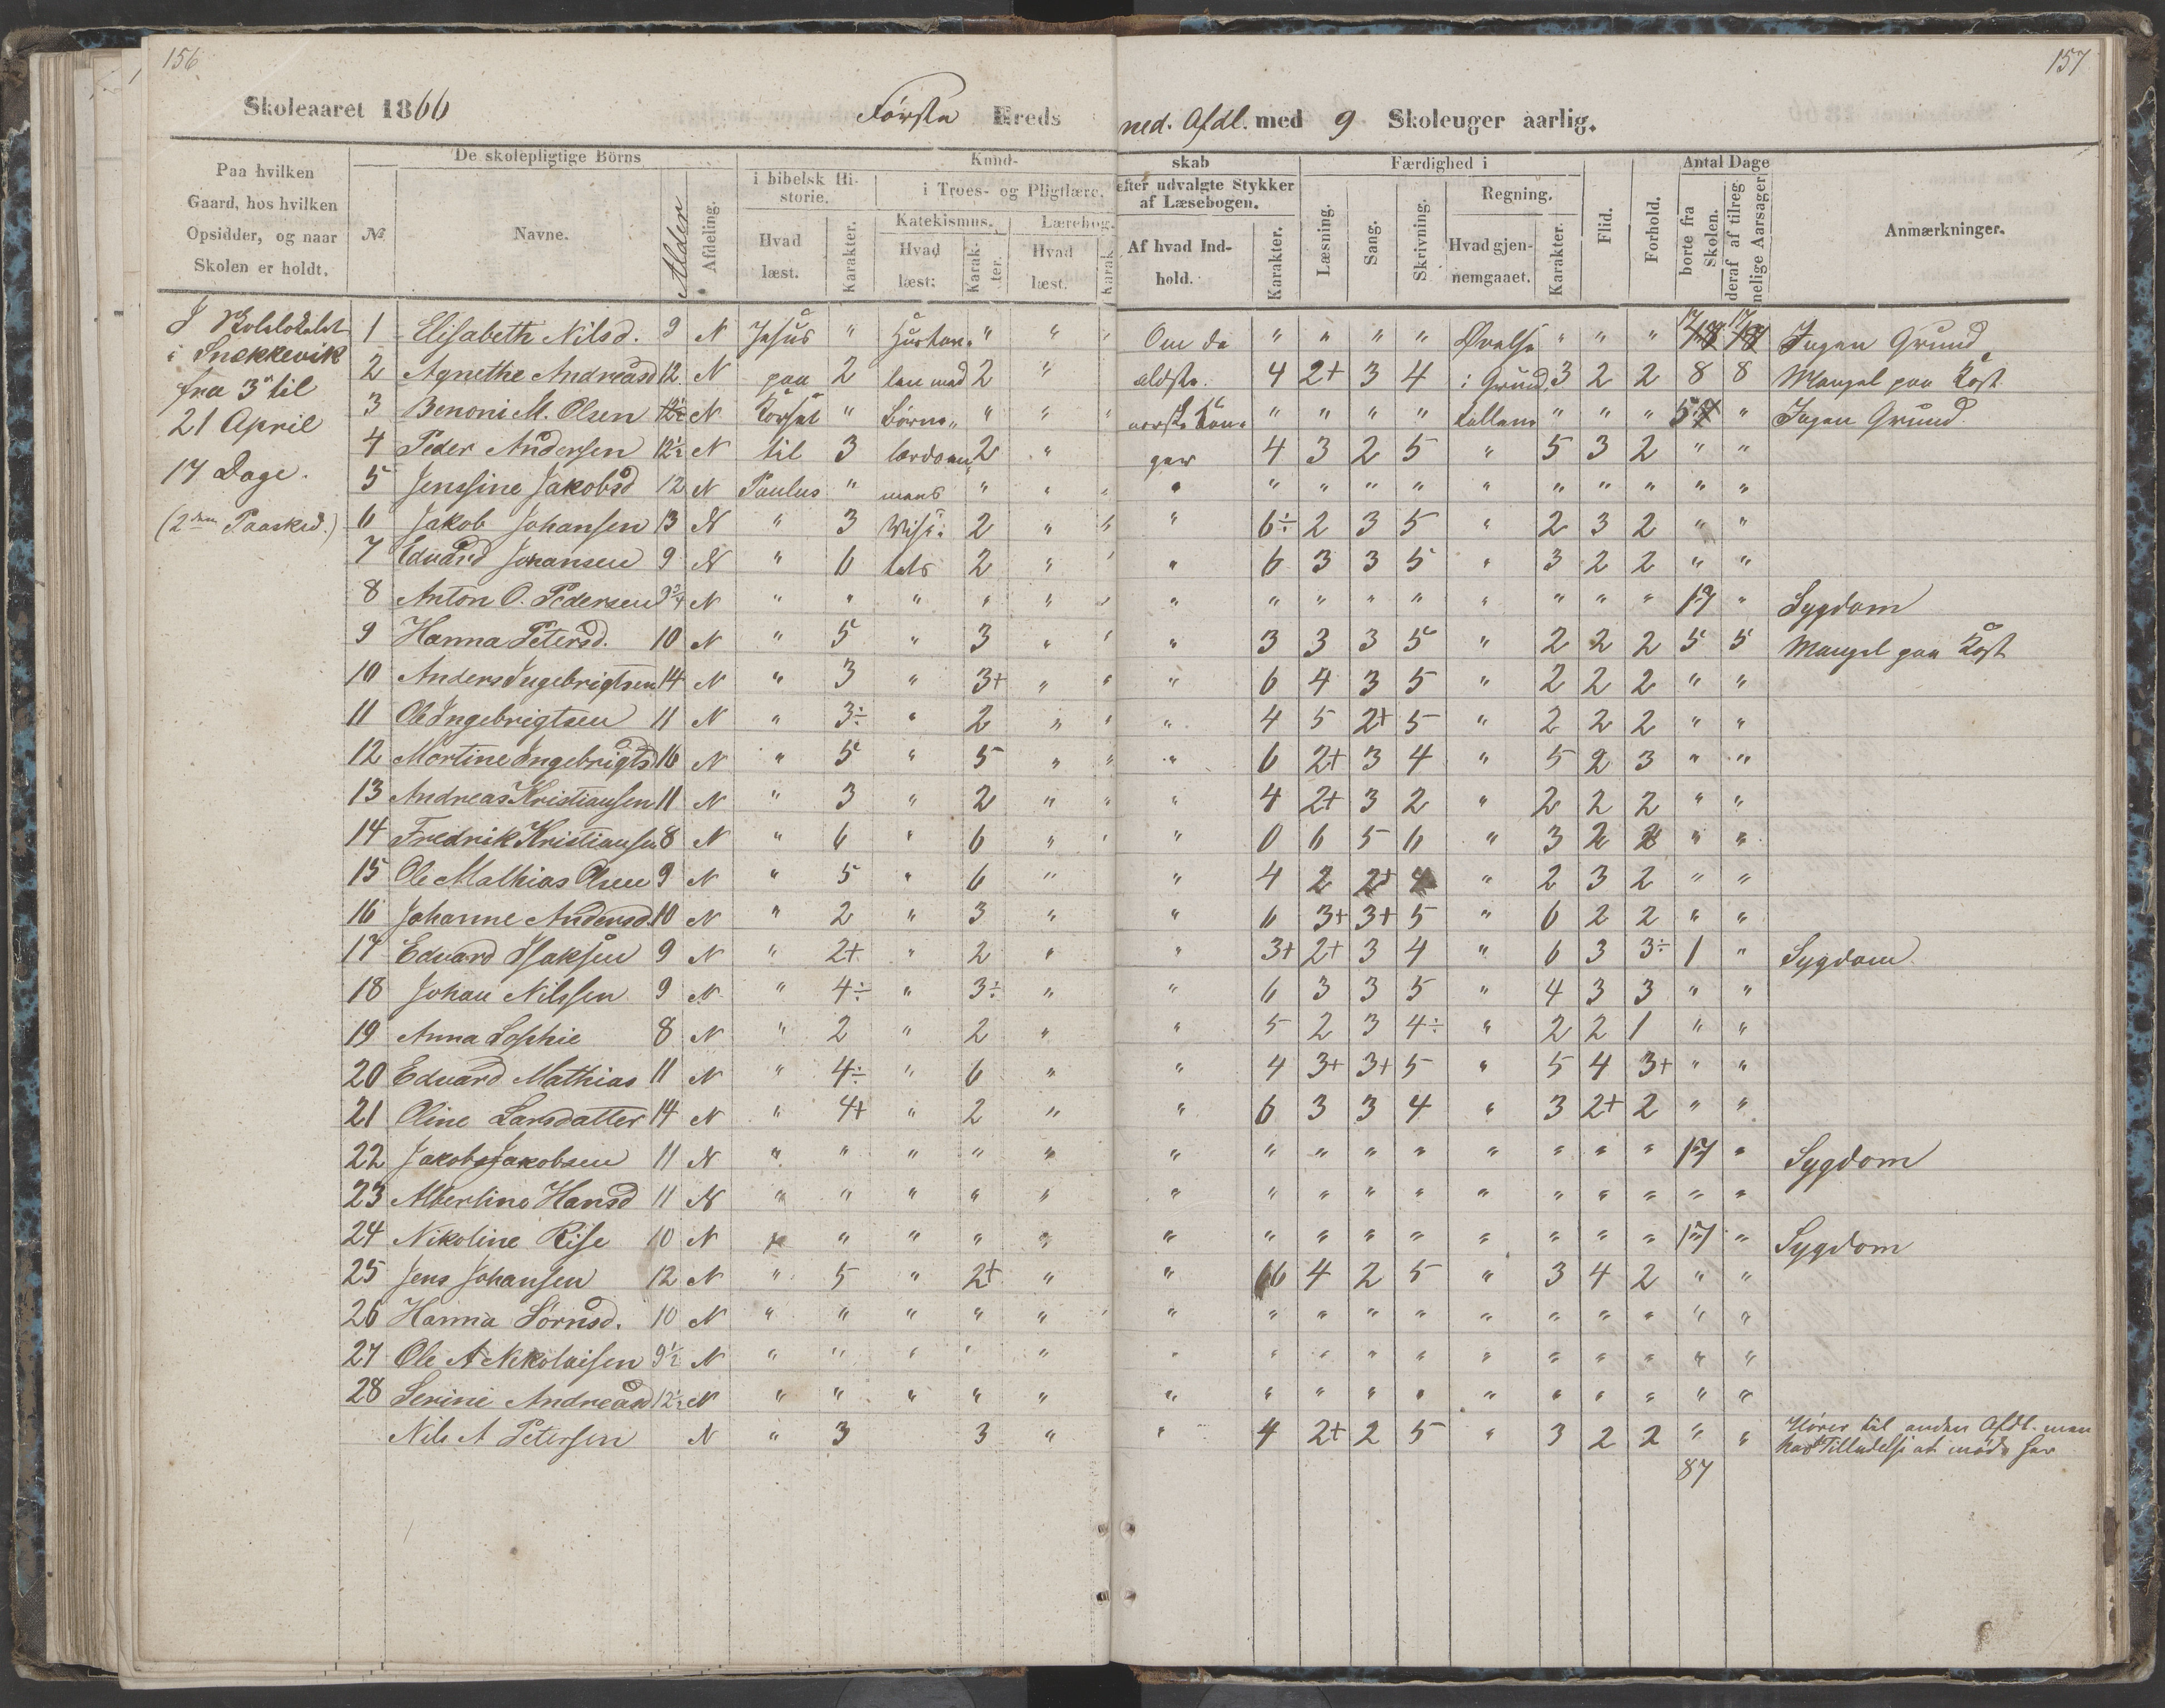 156
157
Skoleaaret 1866 Første Kreds ned. Afdl. med 9 Skoleuger aarlig.
Paa hvilken Gaard, hos hvilken Opsidder, og naar Skolen er holdt.
№
De skolepligtige Börns
Navne.
Alder
Afdeling.
Kund-
skab
i bibelsk Hi-
storie.
Hvad læst.
Karakter.
i Troes- og Pligtlære.
Katekismus.
Hvad læst:
Karak-
ter.
Lærebog.
Hvad læst.
Karak
efter udvalgte Stykker
af Læsebogen.
Af hvad Ind-
hold.
Karakter.
Færdighed i
Læsning.
Sang.
Skrivning.
Regning.
Hvad gjen-
nemgaaet.
Karakter.
Flid.
Forhold.
Antal Dage
borte fra Skolen.
deraf af tilreg-
nelige Aarsager
Anmærkninger.
I Skolelokalet
i Snekkevik
fra 3die til
21 April
17 Dage.
(2den Paasked.)
1 Elisabeth Nilsd. 9 N Jesus " Hustav. " " " Om de " " " " Øvelse " " " 17 17 Ingen Grund
2 Agnethe Andreasd 12 N paa 2 len med 2 " ældste 4 2+ 3 4 i Grund 3 2 2 8 8 Mangel paa Kost
3 Benoni M. Olsen 12½ N Korset " Børne " " " norske Kon- " " " " tallene " " " 57 " Ingen Grund
4 Peder Andersen 12½ N til 3 lærdom 2 " ger 4 3 2 5 " 5 3 2 " "
5 Jenssine Jakobsd 12 N Paulus " " " " " " " " " " " " " " "
6 Jakob Johansen 13 N " 3 2 " " " 6÷ 2 3 5 " 2 3 2 " "
7 Edvard Johansen 9 N " 6 2 " " " 6 3 3 5 " 3 2 2 " "
8 Anton O. Pedersen 9¾ N " " " " " " " " " " " " " " " 17 " Sygdom
9 Hanna Petersd. 10 N " 5 " 3 " " " 3 3 3 5 " 2 2 2 5 5 Mangel paa Kost
10 Anders Ingebrigtsen 14 N " 3 " 3+ " " " 6 4 3 5 " 2 2 2 " "
11 Ole Ingebrigtsen 11 N " 3÷ " 2 " " " 4 5 2+ 5 " 2 2 2 " "
12 Mortine Ingebrigtsd 16 N " 5 " 5 " " " 6 2+ 3 4 " 5 2 3 " "
13 Andreas Kristiansen 11 N " 3 " 2 " " " 4 2+ 3 2 " 2 2 2 " "
14 Fredrik Kristiansen 8 N " 6 " 6 " " " 0 6 5 6 " 3 2 2 " "
15 Ole Mathias Olsen 9 N " 5 " 6 " " 4 2 2+ 4 " 2 3 2 " "
16 Johanne Andersd. 10 N " 2 " 3 " " 6 3+ 3+ 5 " 6 2 2 " "
17 Edvard Isaksen 9 N " 2+ " 2 " " 3+ 2+ 3 4 " 6 3 3÷ 1 " Sygdom
18 Johan Nilssen 9 N " 4÷ " 3÷ " " 6 3 3 5 " 4 3 3 " "
19 Anna Sophie 8 N " 2 " 2 " " 5 2 3 4÷ " 2 2 1 " "
20 Edvard Mathias 11 N " 4÷ " 6 " " 4 3+ 3+ 5 " 5 4 3+ " "
21 Oline Larsdatter 14 N " 4+ " 2 " " 6 3 3 4 " 3 2+ 2 " "
22 Jakob Jakobsen 11 N " " " " " " " " " " " " " " 17 " Sygdom
23 Alberline Hansd 11 N " " " " " " " " " " " " " " " "
24 Nikoline Rise 10 N " " " " " " " " " " " " " " 17 " Sygdom
25 Jens Johansen 12 N " 5 " 2+ " " 6 4 2 5 " 3 4 2 " "
26 Hanna Sørnsd. 10 N " " " " " " " " " " " " " " " " "
27 Ole A Nikolaisen 9½ N " " " " " " " " " " " " " " " "
28 Serine Andreasd 12½ N " " " " " " " " " " " " " " " "
Nils A Petersen N " 3 3 " " 4 2+ 2 5 " 3 2 2 " " Hører til anden Afdl. men
har Tilladelse at møde her
87